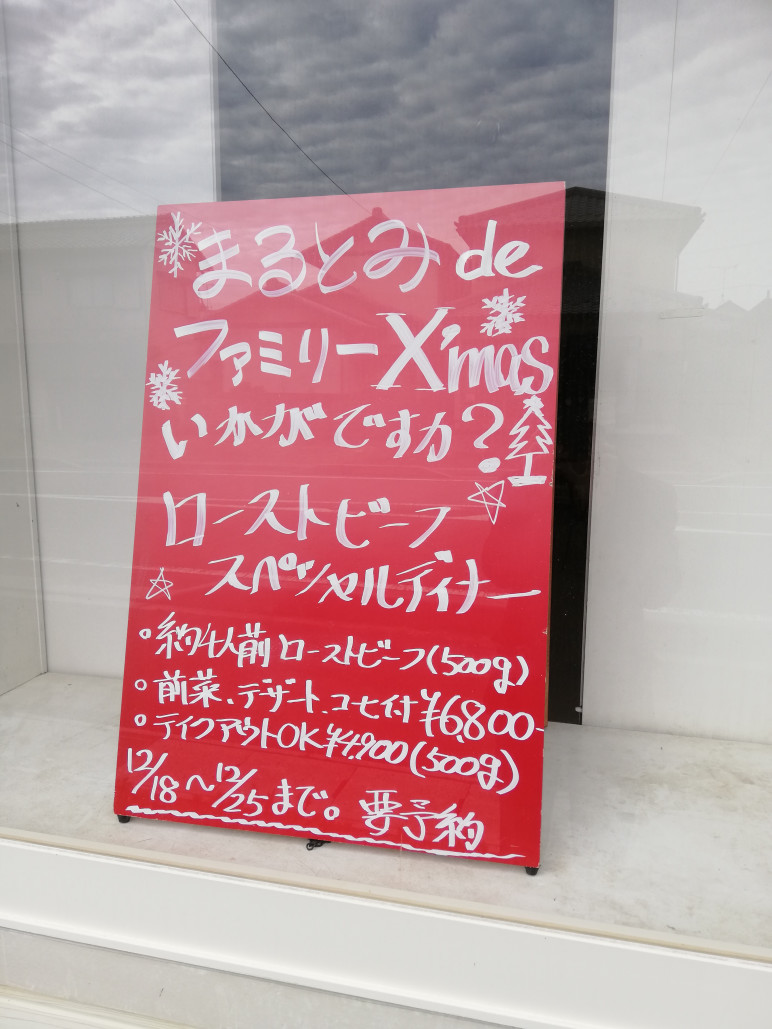 まるとみde
ファミリーX'mas
いかがですか?
ローストビーフ
スペシャルディナー
。約4人前ローストビーフ(500g)
。前菜、デザート、コヒ付¥6,800-
。テイクアウトOK¥4,900(500g)
12/18〜12/25まで。要予約